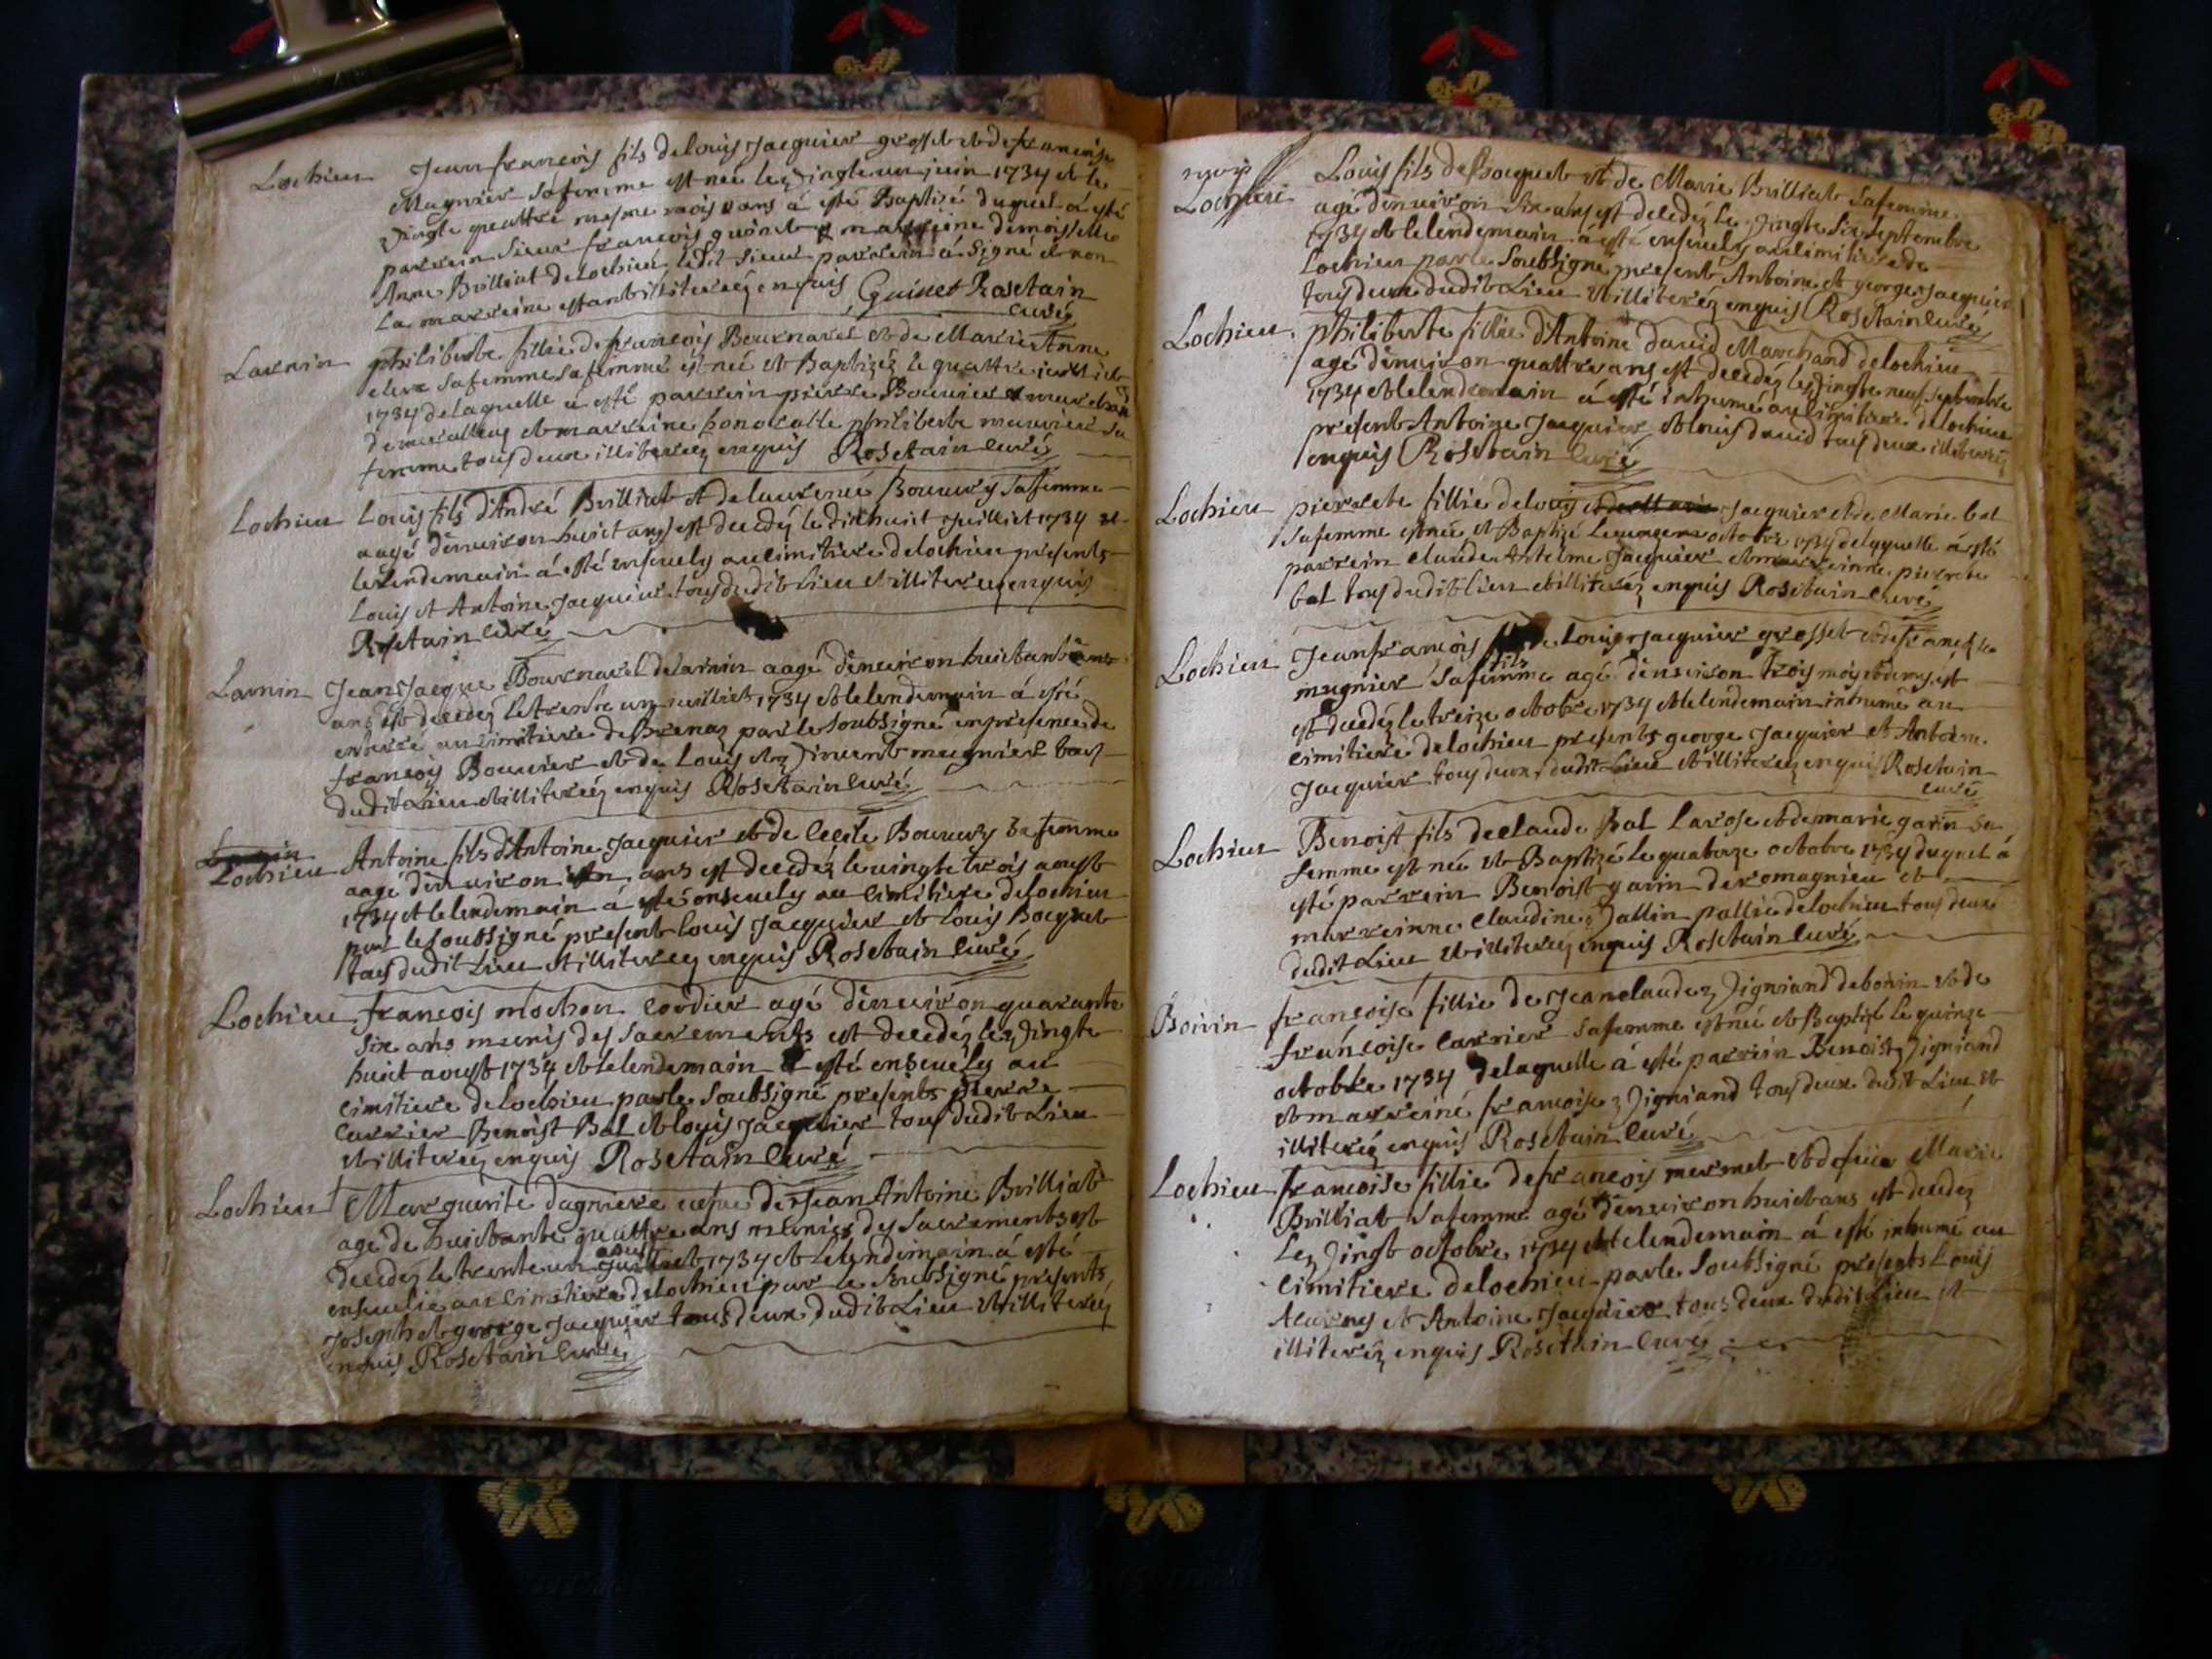 Lochieu Jean françois fils de louis Jacquier grosset et de françoise
Magnier sa femme est né le vingte un juin 1734 et le
vingte quattre mesme mois et ans à esté Baptizé duquel à esté
parrein sieur françois guinet et marreine demoiselle
Anne Brilliat de Lochieu ledit sieur parrein à signé et non
la marreine estant illiterée enquis Guinet Rosetain
curé
Larnin philiberte fillie de françois Bournarel et de Marie Anne
clerc sa femme sa femme est née et Baptizée le quattre juilliet
1734 de laquelle à esté parrein pierre Bouvier
et marreine honorable philiberte sa
femme tous deux illiterez enquis Rosetain curé
Lochieu Louis fils d'André Brilliat et de laurence Bouvery sa femme
aagé d'enuiron huict ans est decedéz le dixhuict Juilliet 1734 et
le lendemain à esté enseuely au cimitiere de lochieu presents
Louis et Antoine Jacquier tous dudit Lieu et illiterez enquis
Rosetain curé
Larnin Jean Jacque Bournarel de larnin aagé d'enuiron huictante
ans est decedéz le trente un juilliet 1734 et le lendemain à esté
enterré au cimitiere de Brenaz par le soubsigné en presence de
françois Bouvier et de Louis et vincent magnier tous
dudit Lieu et illiteréz enquis Rosetain curé
Lochieu Antoine fils d'Antoine Jacquier et de Cecile Bouvery sa femme
aagé d'enuiron un ans est decedéz le vingte trois aoust
1734 et le lendemain à esté enseuely au cimitiere de lochieu
par le soubsigné present louis Jacquier et louis Bocquet
tous dudit Lieu et illiterez enquis Rosetain curé
Lochieu françois mochon cordier agé d'enuiron quarante
six ans munis des sacrements est decedéz le vingte
huict aoust 1734 et le lendemain à esté enseuely au
cimitiere de lochieu par le soubsigné presents pierre
carrier Benoist Bal et louis Jacquier tous dudit Lieu
et illiteréz enquis Rosetain curé
Lochieu Marguerite dagniere de Jean Antoine Brilliat
agé de huictante quattre ans munies des sacrements est
decedéz le trente un aoust 1734 et le lendemain à esté
enseuelie au cimitiere de lochieu par le soubsigné presents
Joseph et george Jacquier tous deux dudit Lieu et illiteréz
enquis Rosetain curé
Lochieu Louis fils de Bocquet et de Marie Brilliat sa femme
agé d'enuiron six ans est decedéz le vingte six septembre
1734 et le lendemain à esté enseuely au cimitiere de
Lochieu par le soubsigné present Antoine et george Jacquier
tous deux dudit Lieu et illiteréz enquis Rosetain curé
Lochieu philiberte fillie d'Antoine david Marchand de lochieu
agé d'enuiron quattre ans est decedéz le vingte neuf septembre
1734 et le lendemain à esté inhumé au cimitiere de lochieu
present Antoine Jacquier et louis david tous deux illiteréz
enquis Rosetain curé
Lochieu pierrete fillie de louis Jacquier et de Marie bal
sa femme est née et Baptizé le octobre 1734 de laquelle à esté
parrein claude Antelme Jacquier et marreinne pierrete
bal tous dudit lieu et illiteréz enquis Rosetain curé
Lochieu Jean françois fils de Louis Jacquier grosset et de françoise
magnier sa femme agé d'enuiron trois mois et demy est
est decedéz le treize octobre 1734 et le lendemain inhumé au
cimitiere de lochieu presents george Jacquier et Antoine
Jacquier tous deux dudit Lieu et illiterez enquis Rosetain
curé
Lochieu Benoist fils de claude bal larose et de marie garin sa
femme est né et Baptizé le quatorze octobre 1734 duquel à
esté parrein Benoist garin de romagnieu et
marreinne claudine vallin pallie de lochieu tous deux
dudit Lieu et illiteréz enquis Rosetain curé
Boivin françoise fillie de Jean claude vigniand de boivin et de
françoise carrier sa femme est née et Baptizé le quinze
octobre 1734 de laquelle à esté parrein Benoist vigniand
et marreine françoise vigniand tous deux dudit Lieu et
illiteréz enquis Rosetain curé
Lochieu françoise fillie de françois mermet et de feüe Marie
Brilliat sa femme agé d'enuiron huict ans est decedéz
le vingt octobre 1734 et le lendemain à esté inhumé au
cimitiere de lochieu par le soubsigné presents Louis
et Antoine Jacquier tous deux dudit Lieu et
illiteréz enquis Rosetain curé